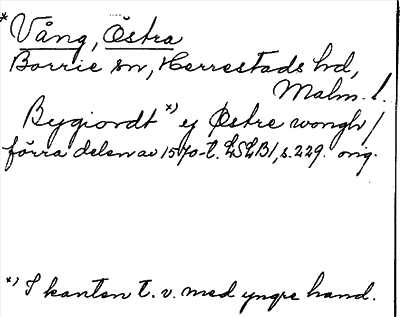 * Vång, Östra
Borrie sn, Herrestads hd,
Malm. l.
Bygiordt *) ey Østre wongh /
förra delen av 1570-t. LSLB1, s. 229. orig.
*) I kanten t. v. med yngre hand.